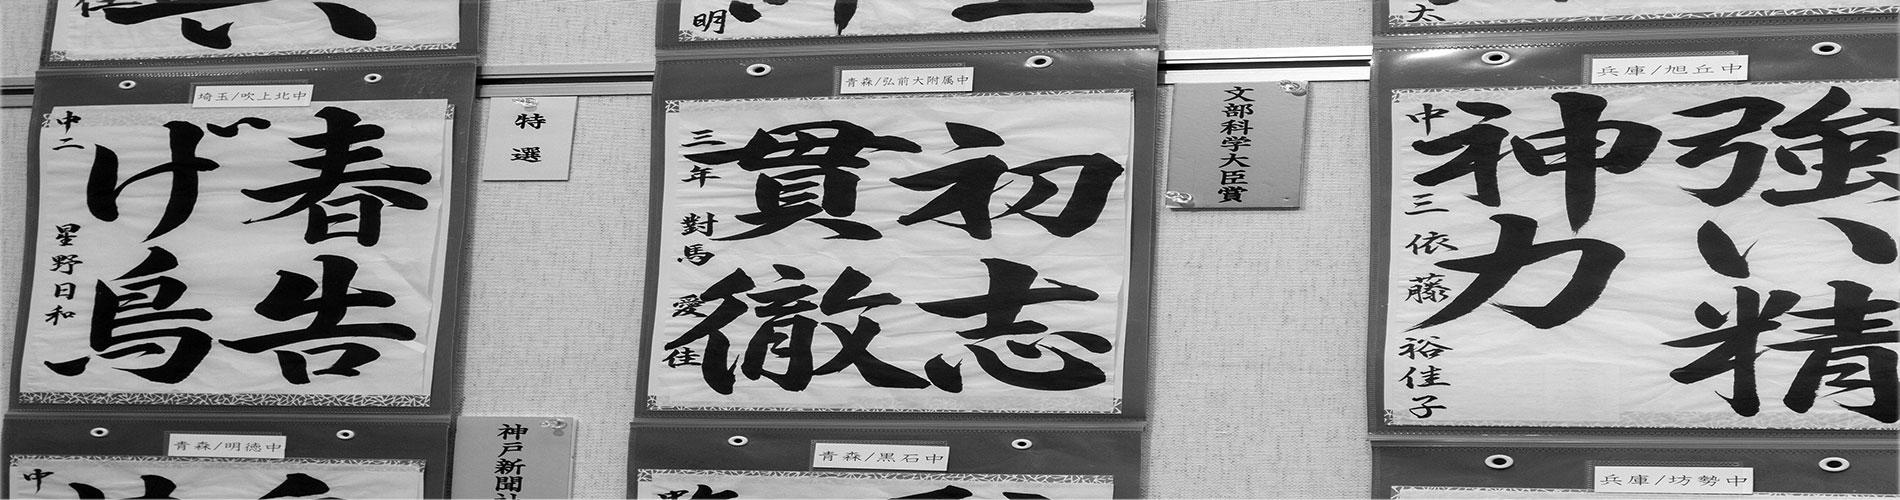 佳
埼玉/吹上北中
春告
げ鳥
中二 星野日和
特選
青森/明徳中
中
神戸新聞社
明
青森/弘前大附属中
初志
貫徹
三年 對馬愛佳
文部科学大臣賞
青森/黒石中
太
兵庫/旭丘中
強い精
神力
中三 依藤裕佳子
兵庫/坊勢中